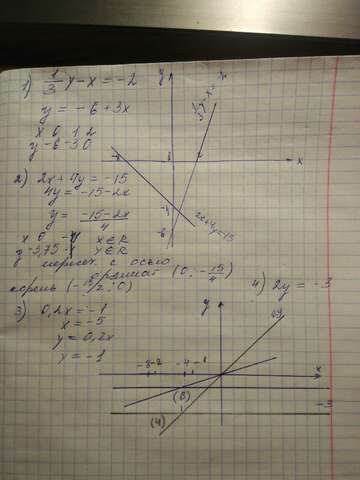 1) 1/3 y - x = -2
y = -6 + 3x
x 0 1 2
y -6 -3 0
2) 2x + 4y = -15
4y = -15 - 2x
y = (-15 - 2x)/4
x 0 x ∈ R
y -3,75 y ∈ R
пересеч с осью
ординат (0; -15/4)
корень (-15/2; 0)
3) 0,2x = -1
x = -5
y = 0,2x
y = -1
4) 2y = -3
y
x
2x+4y=-15
y
x
-3
(3)
(4)